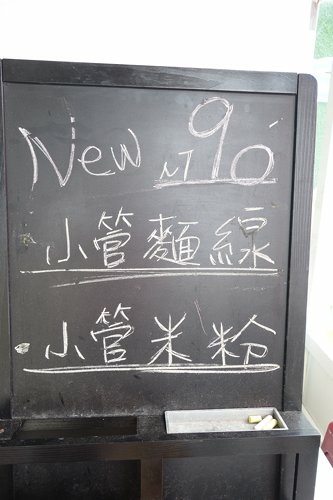 New NT 90
小管麵線
小管米粉